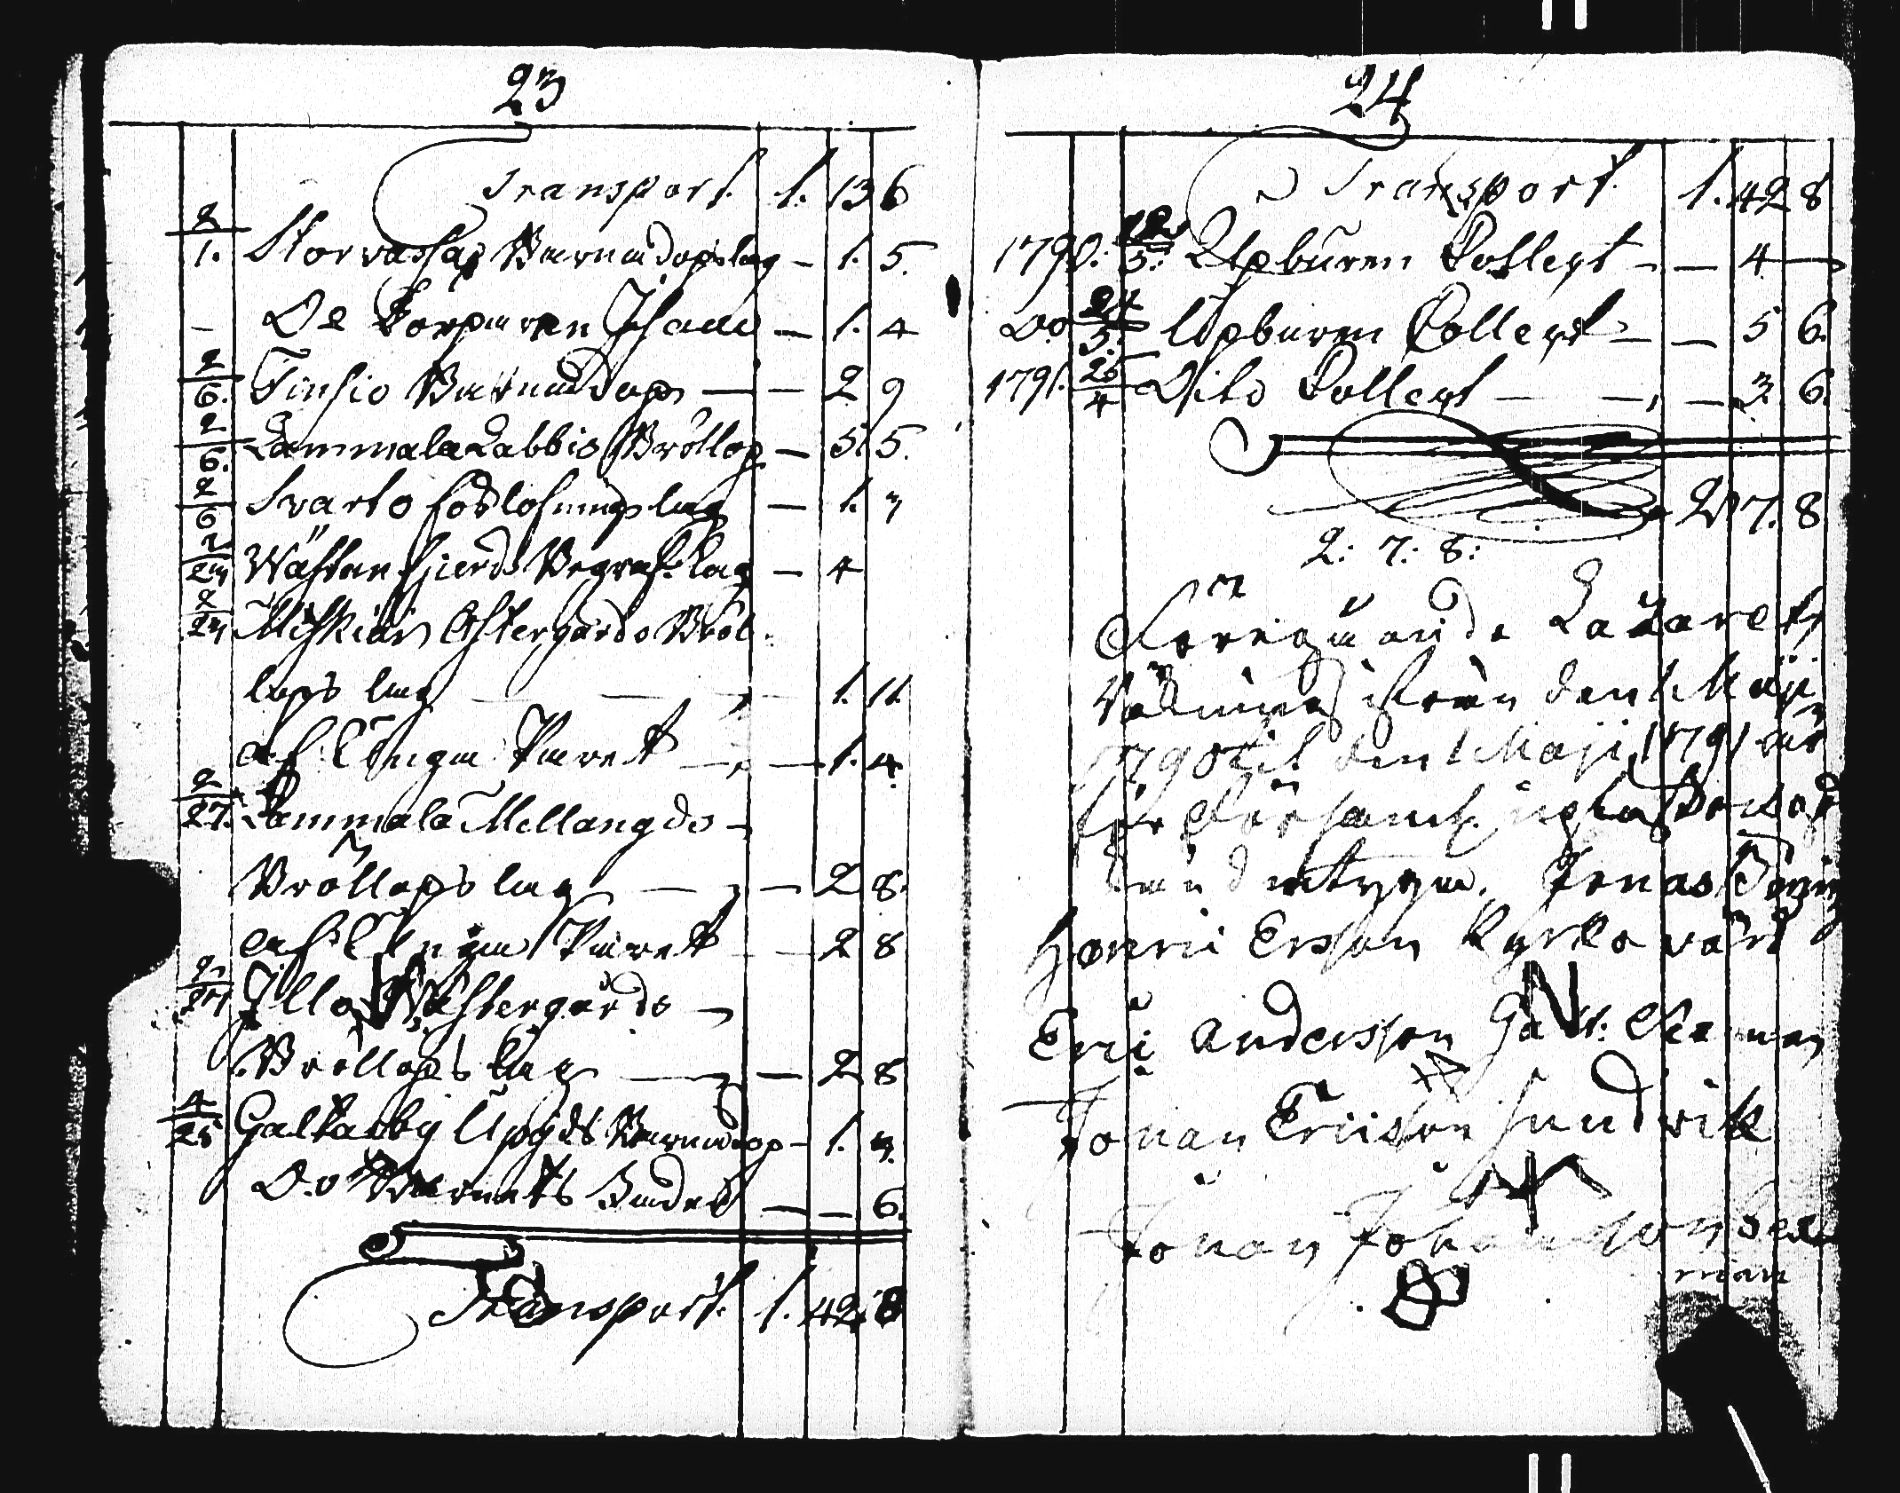 23
Transport. 1. 13 6
2/1. Storvassas Barnadopslag – 1. 5.
– De Torpmren – 1. 4
2/6. Finsio Barnadop – – 2 9
2/6. Gammala Labbis Bröllop – 5. 5.
2/6 Svartö lag – 1. 3
2/24 Wästan fjierds Begraf. lag – 4
2/24 Mÿskian Östergårds Bröl-
lops lag – – – 1. 11.
af: Unga Paret – – 1. 4.
2/27. Gammala Mellangds –
Bröllops lag – – 2 8.
af: Unga Paret – – 2 8
2/27 Illo Wästergårds –
Bröllops lag – – 2 8
4/25 Galtarby Upgds Barnadop – 1. 3.
Do Barnets – – 6.
Transport. 1. 42. 8
24
Transport. 1. 42 8
1790. 12/5. Upburen Collegt – – 4 –
Do 24/5. Upburen Collegt – – 5 6.
1791. 26/4 Dito Collegt – – 3. 6.
2. 7. 8
2: 7: 8:
Föregående Lazarets
Räkning ifrån den 1 Maji
1790 til den 1 Maji 1791 är
för Församl. upläst
Jonas
Henric Ersson Kyrko värd
Eric Andersson
N
Johan Ericsson Sundvik
Johan Johansson
man